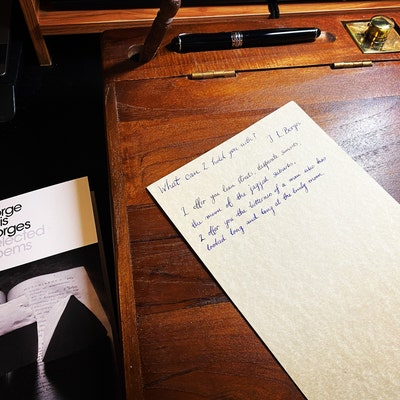 orge
is
orges
elected
oems
What can I hold you with? J. L. Borges
I offer you lean streets, desperate sunsets,
the moon of the jagged suburbs.
I offer you the bitterness of a man who has
looked long and long at the lonely moon.